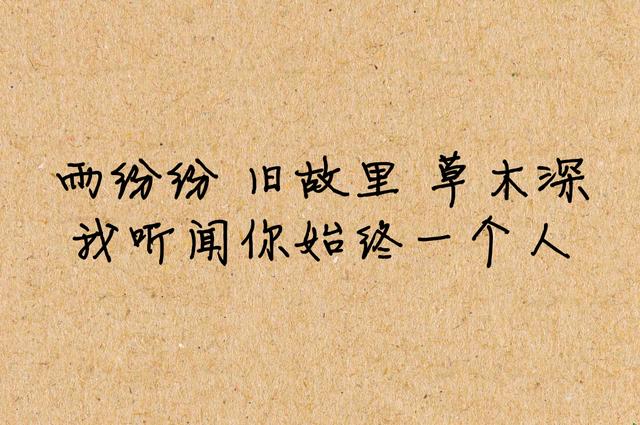 雨纷纷 旧故里 草木深
我听闻你始终一个人